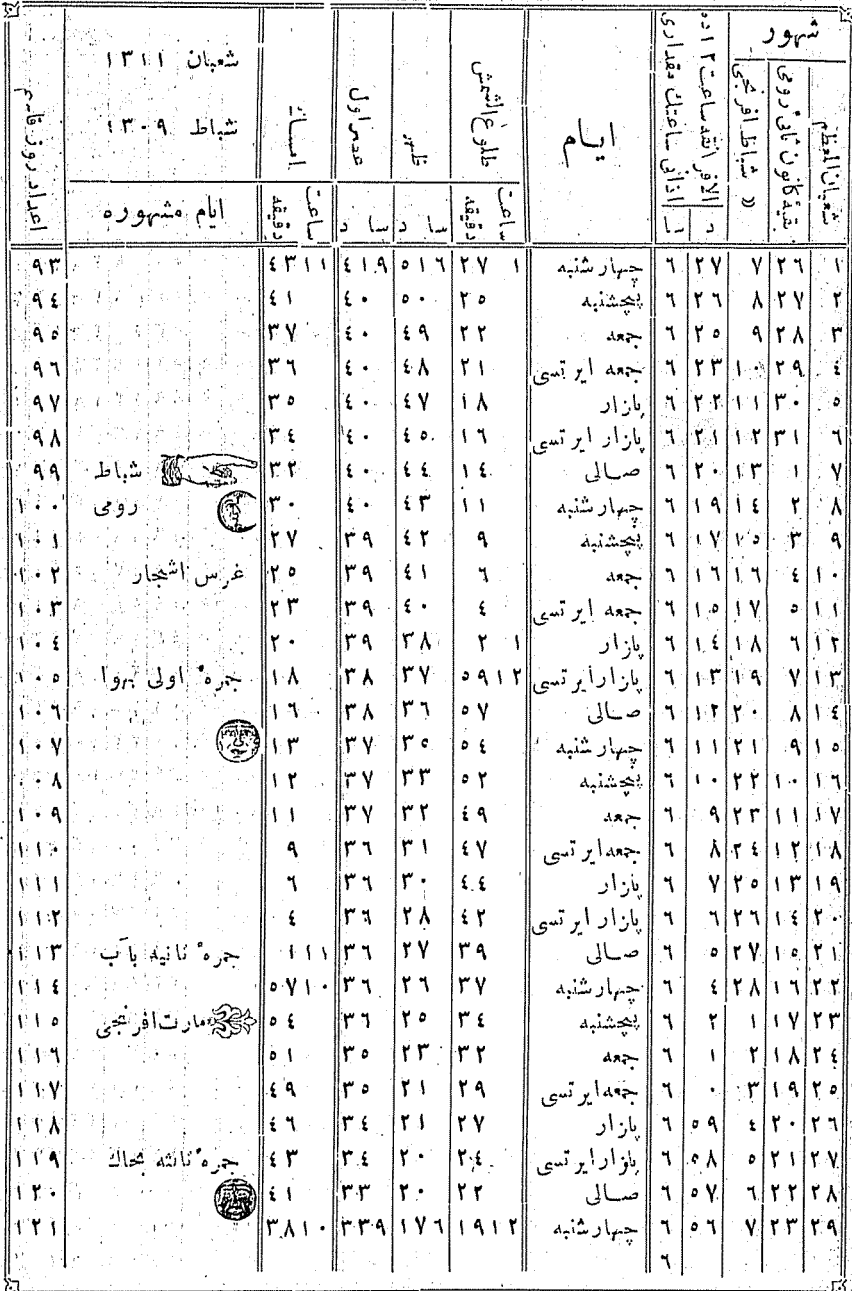 شهور
شعبان المعظم
بقيهٔ كانون ثانئ رومى
» شباط افرنجى
الافرانقه ساعت ١٢ ده
اذانى ساعتك مقدارى
د
ايام
طلوع الشمش
ساعت دقيقه
ظهر
سا د
عصر اول
سا د
امساك
ساعت دقيقه
شعبان ١٣١١
شباط ١٣٠٩
ايام مشهوره
اعداد روز قاسم
١ ٢٦ ٧ ٢٧ ٦ چهارشنبه ١ ٢٧ ٦ ٥١ ٩ ٤١ ١١ ٤٣ ٩٣
٢ ٢٧ ٨ ٢٦ ٦ پنجشنبه ٢٥ ٥٠ ٤٠ ٤١ ٩٤
٣ ٢٨ ٩ ٢٥ ٦ جمعه ٢٢ ٤٩ ٤٠ ٣٧ ٩٥
٤ ٢٩ ١٠ ٢٣ ٦ جمعه ايرتسى ٢١ ٤٨ ٤٠ ٣٦ ٩٦
٥ ٣٠ ١١ ٢٢ ٦ پازار ١٨ ٤٧ ٤٠ ٣٥ ٩٧
٦ ٣١ ١٢ ٢١ ٦ پازار ايرتسى ١٦ ٤٥ ٤٠ ٣٤ ٩٨
٧ ١ ١٣ ٢٠ ٦ صالى ١٤ ٤٤ ٤٠ ٣٢ شباط ٩٩
٨ ٢ ١٤ ١٩ ٦ چهارشنبه ١١ ٤٣ ٤٠ ٣٠ رومى ١٠٠
٩ ٣ ١٥ ١٧ ٦ پنجشنبه ٩ ٤٢ ٣٩ ٢٧ ١٠١
١٠ ٤ ١٦ ١٦ ٦ جمعه ٦ ٤١ ٣٩ ٢٥ غرس اشجار ١٠٢
١١ ٥ ١٧ ١٥ ٦ جمعه ايرتسى ٤ ٤٠ ٣٩ ٢٣ ١٠٣
١٢ ٦ ١٨ ١٤ ٦ پازار ١ ٢ ٣٨ ٣٩ ٢٠ ١٠٤
١٣ ٧ ١٩ ١٣ ٦ پازار ايرتسى ١٢ ٥٩ ٣٧ ٣٨ ١٨ جمرهٔ اولى بهوا ١٠٥
١٤ ٨ ٢٠ ١٢ ٦ صالى ٥٧ ٣٦ ٣٨ ١٦ ١٠٦
١٥ ٩ ٢١ ١١ ٦ چهارشنبه ٥٤ ٣٥ ٣٧ ١٣ ١٠٧
١٦ ١٠ ٢٢ ١٠ ٦ پنجشنبه ٥٢ ٣٣ ٣٧ ١٢ ١٠٨
١٧ ١١ ٢٣ ٩ ٦ جمعه ٤٩ ٣٢ ٣٧ ١١ ١٠٩
١٨ ١٢ ٢٤ ٨ ٦ جمعه ايرتسى ٤٧ ٣١ ٣٦ ٩ ١١٠
١٩ ١٣ ٢٥ ٧ ٦ پازار ٤٤ ٣٠ ٣٦ ٦ ١١١
٢٠ ١٤ ٢٦ ٦ ٦ پازار ايرتسى ٤٢ ٢٨ ٣٦ ٤ ١١٢
٢١ ١٥ ٢٧ ٥ ٦ صالى ٣٩ ٢٧ ٣٦ ١١ ١ جمرهٔ ثانيه بآب ١١٣
٢٢ ١٦ ٢٨ ٤ ٦ چهارشنبه ٣٧ ٢٦ ٣٦ ١٠ ٥٧ ١١٤
٢٣ ١٧ ١ ٢ ٦ پنجشنبه ٣٤ ٢٥ ٣٦ ٥٤ مارت افرنجى ١١٥
٢٤ ١٨ ٢ ١ ٦ جمعه ٣٢ ٢٣ ٣٥ ٥١ ١١٦
٢٥ ١٩ ٣ ٠ ٦ جمعه ايرتسى ٢٩ ٢١ ٣٥ ٤٩ ١١٧
٢٦ ٢٠ ٤ ٥٩ ٦ پازار ٢٧ ٢١ ٣٤ ٤٦ ١١٨
٢٧ ٢١ ٥ ٥٨ ٦ پازار ايرتسى ٢٤ ٢٠ ٣٤ ٤٣ جمرهٔ ثالثه بخاك ١١٩
٢٨ ٢٢ ٦ ٥٧ ٦ صالى ٢٢ ٢٠ ٣٣ ٤١ ١٢٠
٢٩ ٢٣ ٧ ٥٦ ٦ چهارشنبه ١٢ ١٩ ٦ ١٧ ٩ ٣٣ ١٠ ٣٨ ١٢١
٦